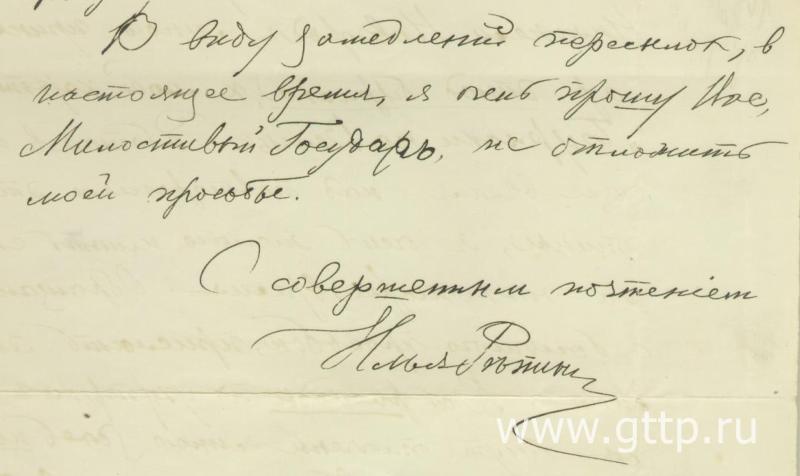 В виду замедленій пересылок, в
настоящее время, я очень прошу Вас,
Милостивый Государь, не отложить
моей просьбы.
С совершенным почтеніем
Илья Рѣпин
www.gttp.ru